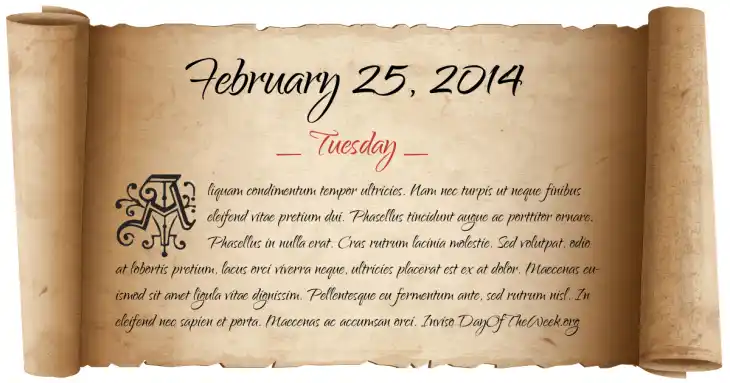 February 25, 2014
— Tuesday —
Aliquam condimentum tempor ultricies. Nam nec turpis ut neque finibus
eleifend vitae pretium dui. Phasellus tincidunt augue ac porttitor ornare.
Phasellus in nulla erat. Cras rutrum lacinia molestie. Sed volutpat, odio
at lobortis pretium, lacus orci viverra neque, ultricies placerat est ex at dolor. Maecenas eu-
ismod sit amet ligula vitae dignissim. Pellentesque eu fermentum ante, sed rutrum nisl. In
eleifend nec sapien et porta. Maecenas ac accumsan orci. Inviso DayOfTheWeek.org